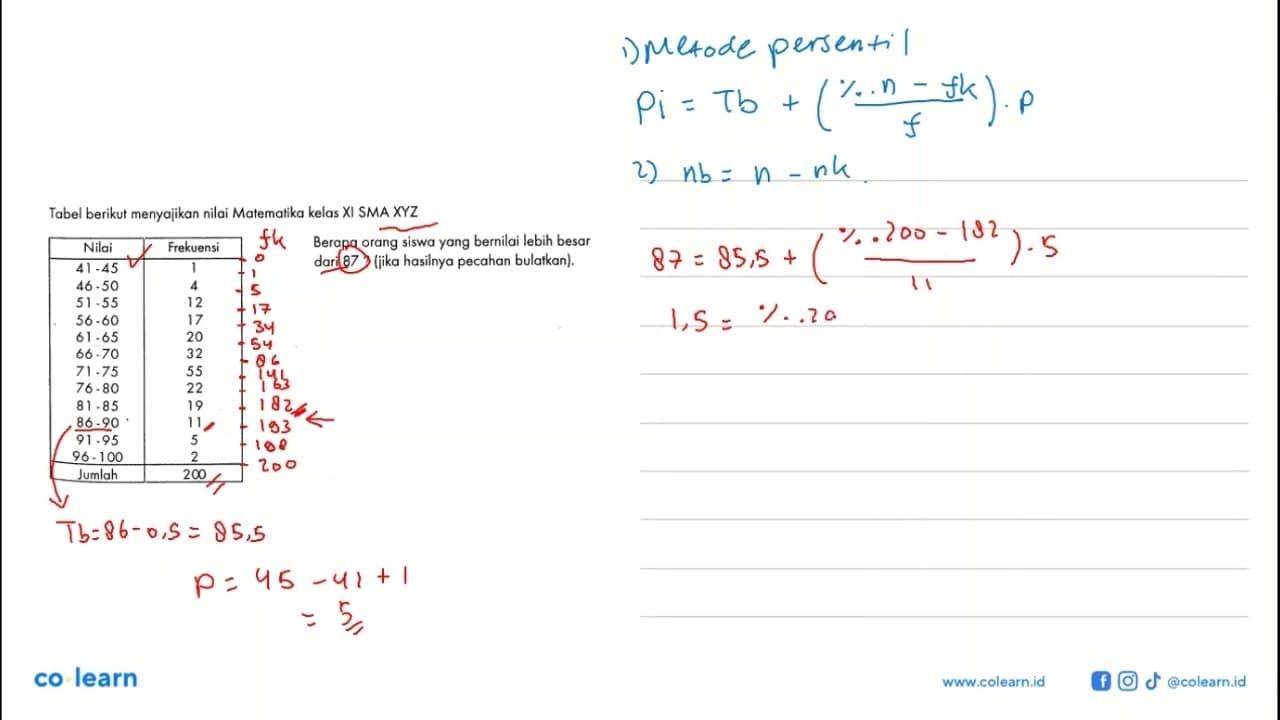 1) Metode persentil
Pi = Tb + (%.n - fk / f) . p
2) nb = n - nk.
Tabel berikut menyajikan nilai Matematika kelas XI SMA XYZ
Berapa orang siswa yang bernilai lebih besar
dari 87 ? (jika hasilnya pecahan bulatkan).
Nilai Frekuensi fk
0
41-45 1 1
46-50 4 5
51-55 12 17
56-60 17 34
61-65 20 54
66-70 32 86
71-75 55 141
76-80 22 163
81-85 19 182
86-90 11 193
91-95 5
96-100 2 200
Jumlah 200
87 = 85,5 + (%.200 - 182 / 11) . 5
1,5 = %.20
Tb = 86 - 0,5 = 85,5
p = 45 - 41 + 1
= 5
co learn
www.colearn.id
@colearn.id